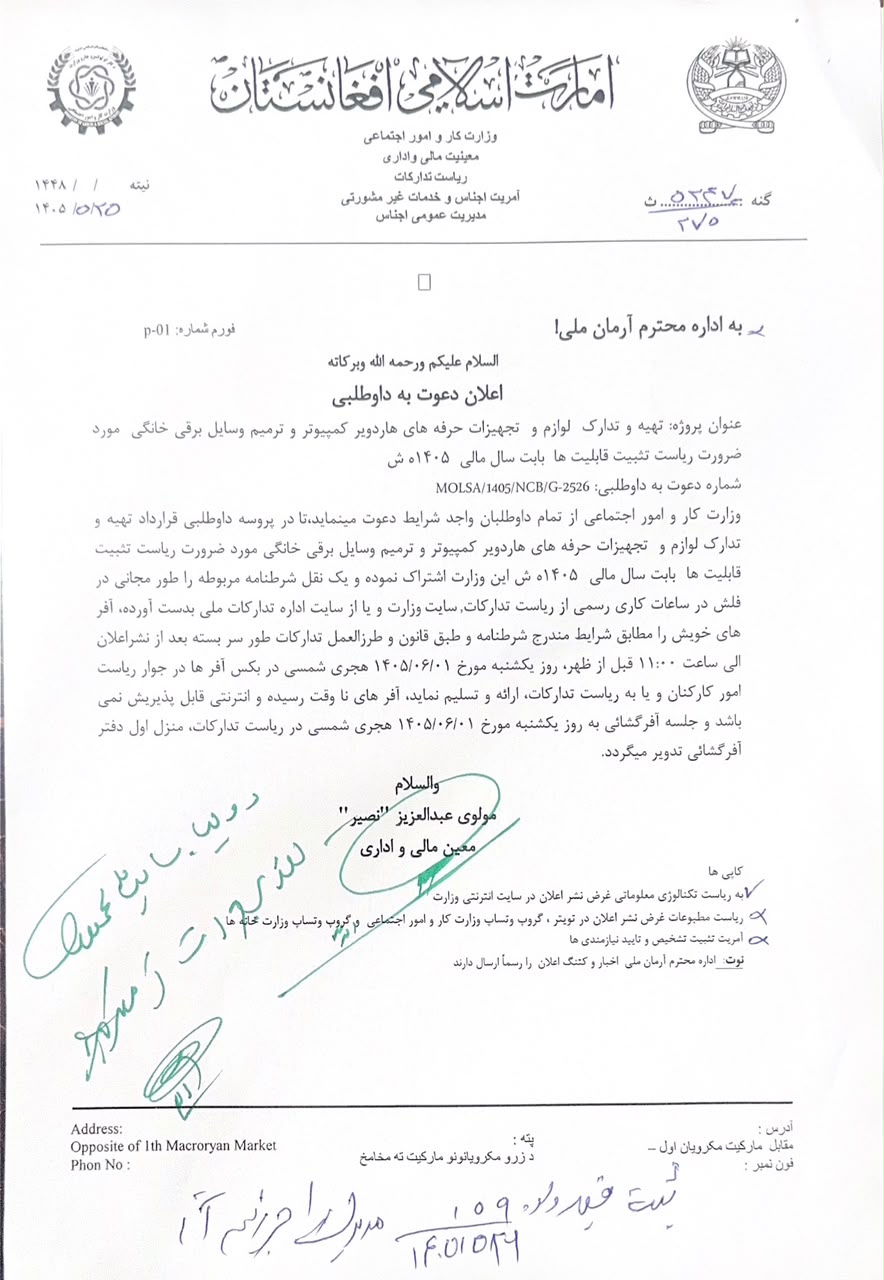 امارت اسلامی افغانستان
وزارت کار و امور اجتماعی
معینیت مالی واداری
ریاست تدارکات
آمریت اجناس و خدمات غیر مشورتی
مدیریت عمومی اجناس
نیته / / ۱۴۴۸
۱۴۰۵/۵/۲۵
گنه ث
۲۷۵
به اداره محترم آرمان ملی!
فورم شماره: p-01
السلام علیکم ورحمه الله وبرکاته
اعلان دعوت به داوطلبی
عنوان پروژه: تهیه و تدارک لوازم و تجهیزات حرفه های هاردویر کمپیوتر و ترمیم وسایل برقی خانگی مورد
ضرورت ریاست تثبیت قابلیت ها بابت سال مالی ۱۴۰۵ه ش
شماره دعوت به داوطلبی: MOLSA/1405/NCB/G-2526
وزارت کار و امور اجتماعی از تمام داوطلبان واجد شرایط دعوت مینماید،تا در پروسه داوطلبی قرارداد تهیه و
تدارک لوازم و تجهیزات حرفه های هاردویر کمپیوتر و ترمیم وسایل برقی خانگی مورد ضرورت ریاست تثبیت
قابلیت ها بابت سال مالی ۱۴۰۵ه ش این وزارت اشتراک نموده و یک نقل شرطنامه مربوطه را طور مجانی در
فلش در ساعات کاری رسمی از ریاست تدارکات, سایت وزارت و یا از سایت اداره تدارکات ملی بدست آورده، آفر
های خویش را مطابق شرایط مندرج شرطنامه و طبق قانون و طرزالعمل تدارکات طور سر بسته بعد از نشراعلان
الی ساعت ۱۱:۰۰ قبل از ظهر، روز یکشنبه مورخ ۱۴۰۵/۰۶/۰۱ هجری شمسی در بکس آفر ها در جوار ریاست
امور کارکنان و یا به ریاست تدارکات، ارائه و تسلیم نماید، آفر های نا وقت رسیده و انترنتی قابل پذیریش نمی
باشد و جلسه آفرگشائی به روز یکشنبه مورخ ۱۴۰۵/۰۶/۰۱ هجری شمسی در ریاست تدارکات، منزل اول دفتر
آفرگشائی تدویر میگردد.
والسلام
مولوی عبدالعزیز "نصیر"
معین مالی و اداری
کاپی ها
به ریاست تکنالوژی معلوماتی غرض نشر اعلان در سایت انترنتی وزارت
ریاست مطبوعات غرض نشر اعلان در تویتر ، گروپ وتساپ وزارت کار و امور اجتماعی و گروپ وتساپ وزارت خانه ها
آمریت تثبیت تشخیص و تایید نیازمندی ها
نوت: اداره محترم آرمان ملی اخبار و کتنگ اعلان را رسماً ارسال دارند
Address:
Opposite of 1th Macroryan Market
Phon No :
پته :
د زرو مکرویانونو مارکیت ته مخامخ
آدرس :
مقابل مارکیت مکرویان اول –
فون نمبر :
۱۵۹